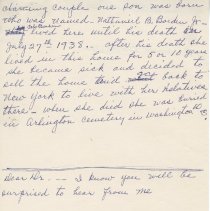 charming couple one son was born
who was named. Nathaniel B. Borden Jr -
lived here until his death on
July 27th 1938 - after his death she
lived in this house for 5 or 10 years
she became sick and decided to
sell the home and go back to
New York to live with her Relatives
there - when she died she was buried
in Arlington Cemetery in Washington
Dear Mr. -- I know you will be
surprised to hear from me